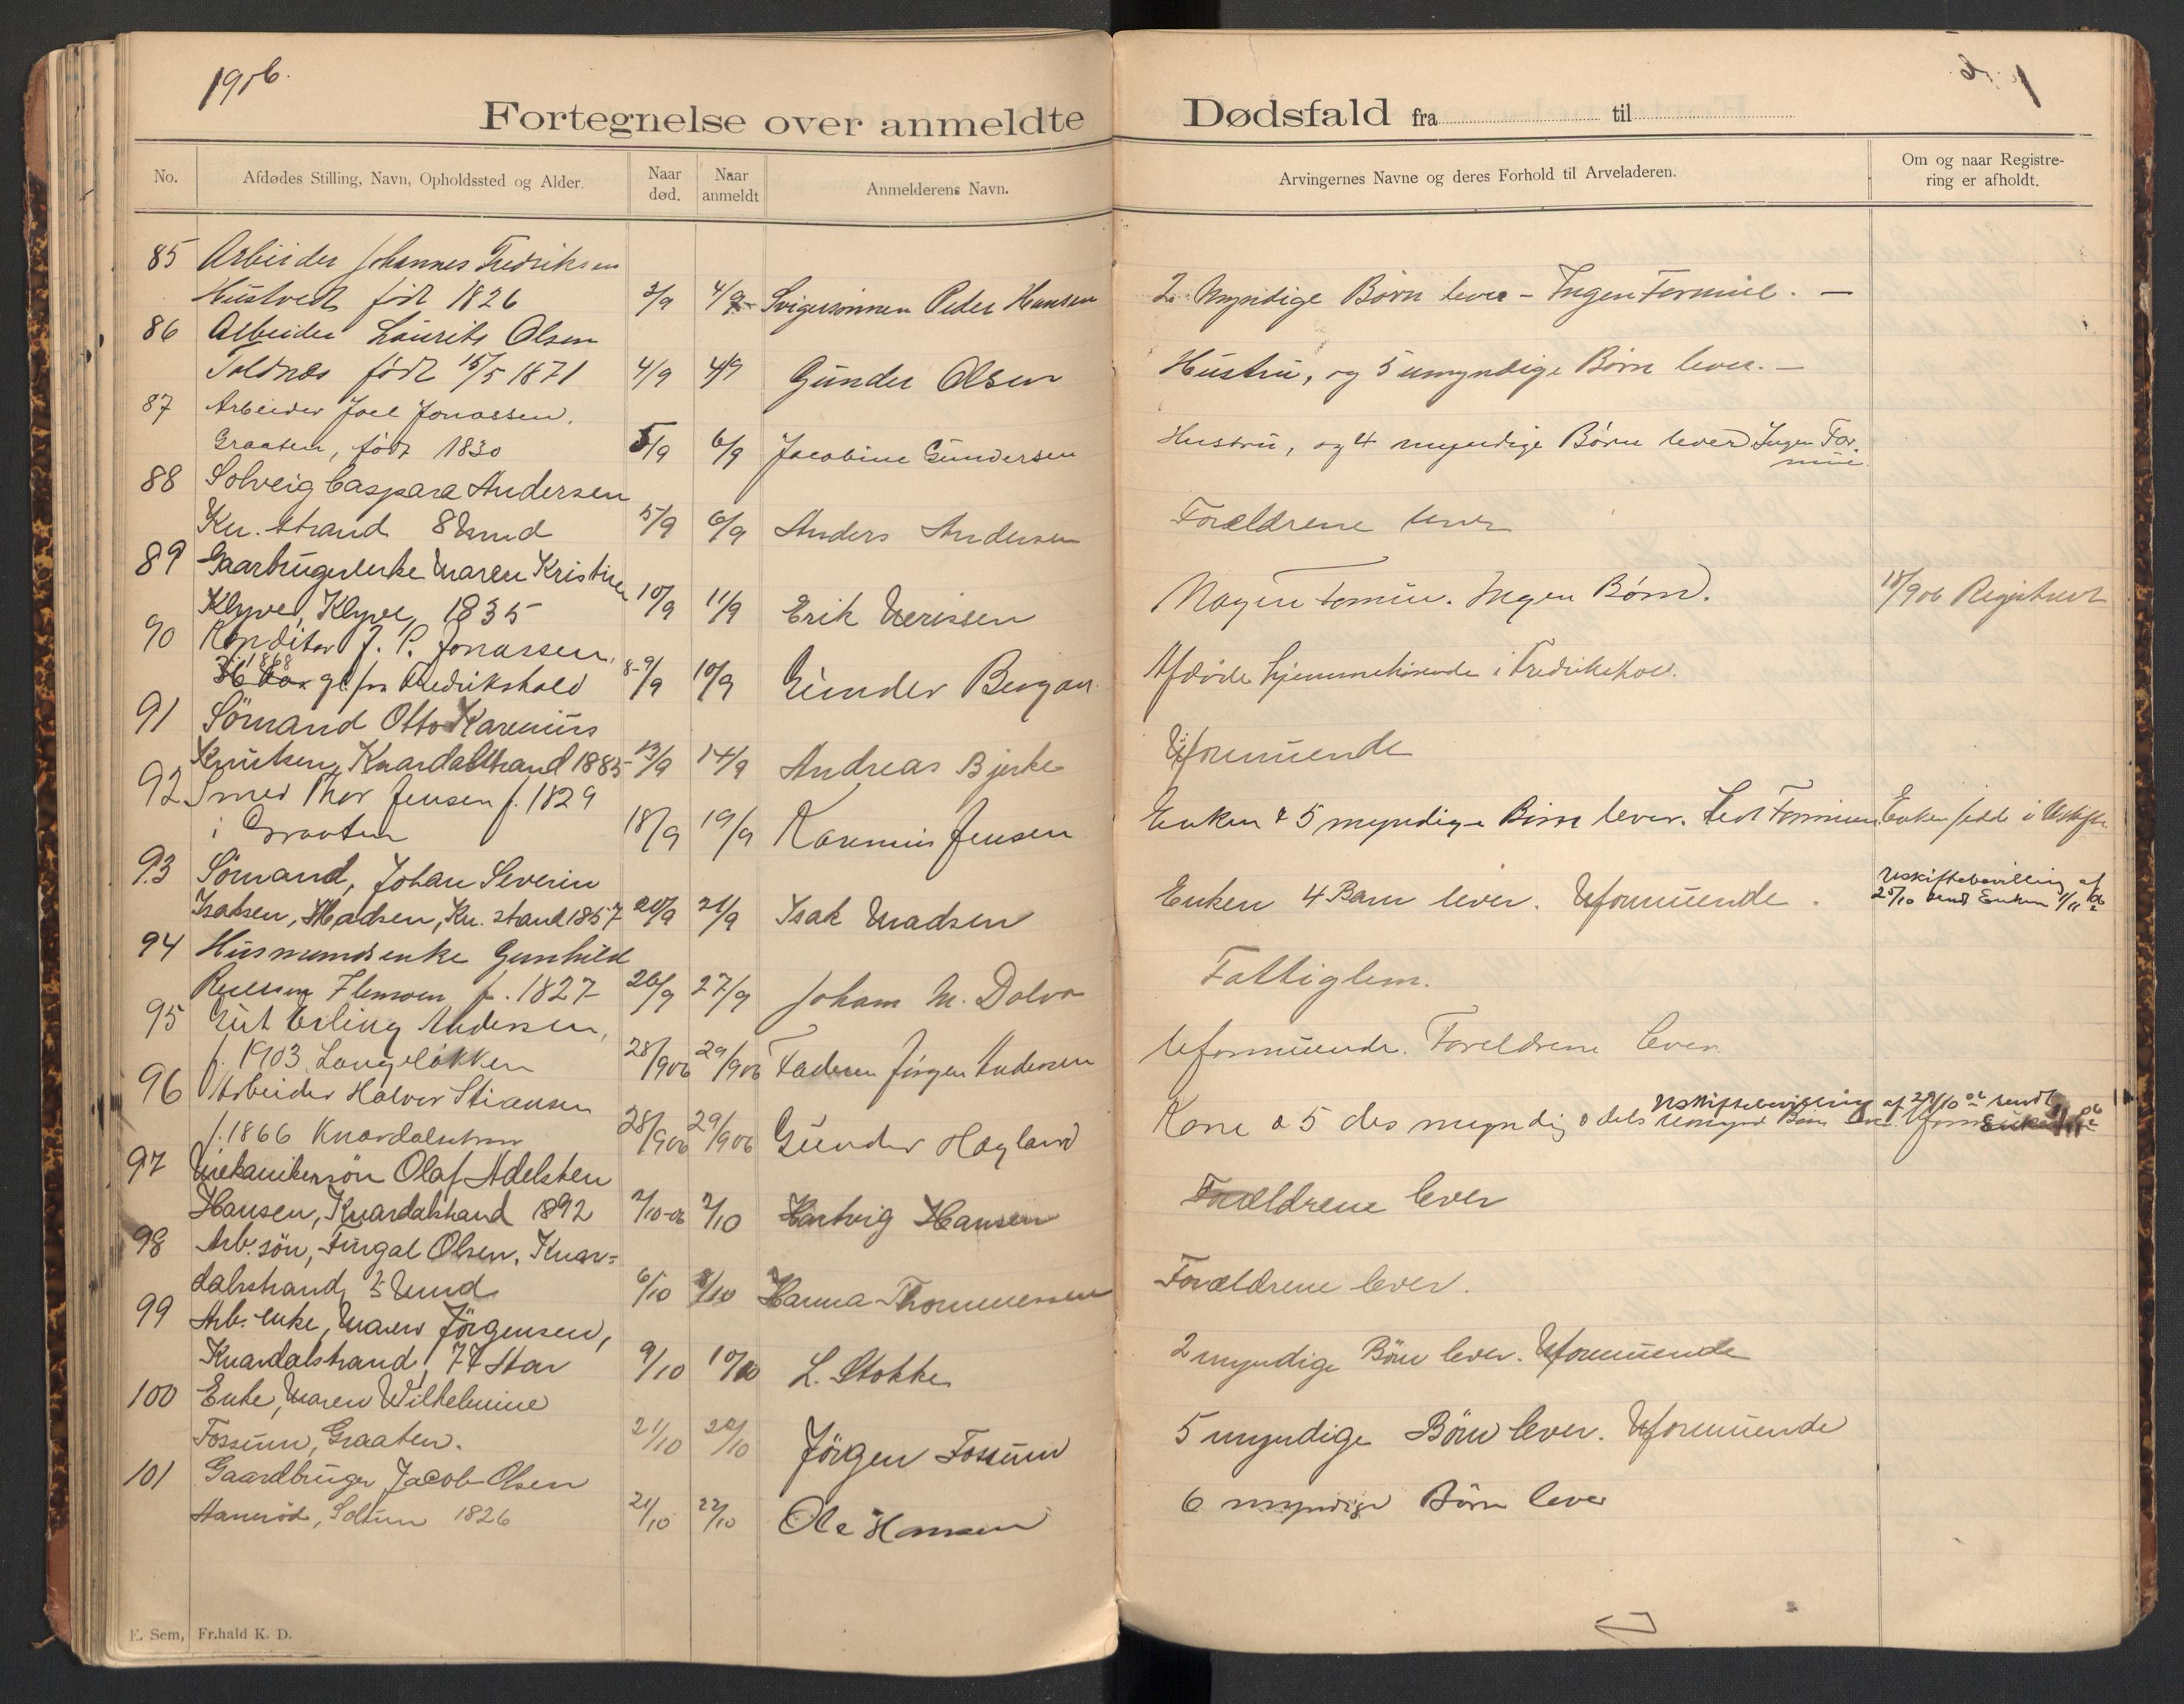 1906.
Fortegnelse over anmeldte Dødsfald fra til
No.
Afdødes Stilling, Navn, Opholdssted og Alder.
Naar død.
Naar anmeldt
Anmelderens Navn.
Arvingernes Navne og deres Forhold til Arveladeren.
Om og naar Registre-
ring er afholdt.
85 Arbeider Johannes Fredriksen
født 1826 3/9 4/9 Svigersønnen Peder Hansen 2 Myndige Børn lever - Ingen Formue. -
86 Arbeider Laurits Olsen
Toldnæs født 15/5 1871 4/9 4/9 Gunder Olsen Hustru, og 5 umyndige Børn lever. -
87 Arbeider Joel Jonassen.
Graaten, født 1830 5/9 6/9 Jacobine Gundersen Hustru, og 4 myndige Børn lever Ingen For-
mue.
88 Solveig Caspara Andersen
Kn. strand 8 Mnd 5/9 6/9 Anders Andersen Forældrene lever
89 Gaarbrugerenke Maren Kristine
Klyve, Klyve, 1835 10/9 11/9 Erik Nerissen Nogen Formue. Ingen Børn. 18/906 Registreret
90 Konditor J. P. Jonassen,
1868
fra Fredrikshald 8-9/9 10/9 Gunder Bergan. Afdøde hjemmehørende i Fredrikshald.
91 Sömand Otto Karenius
Knutsen, Knardalstrand 1885 13/9 14/9 Andreas Bjerke Uformuende
92 Smed Thor Jensen f. 1829
i Graaten 18/9 19/9 Karenius Jensen Enken & 5 myndige Børn lever. Lidt Formue Enken sidde i Uskifte
93 Sömand, Johan Severin
Isaksen, Madsen, Kn. strand 1857 20/9 21/9 Isak Madsen Enken 4 Barn lever. Uformuende. Uskiftebevilling af
25/10 sendt Enken 1/11 06
94 Husmandsenke Gunhild
f. 1827 26/9 27/9 Johan M. Dolva Fattiglem.
95 Gut Erling Andersen,
f. 1903 Langeløkken 28/906 29/906 Faderen Jørgen Andersen Uformuende. Foreldrene lever.
96 Arbeider Halvor Stiansen
f. 1866 Knardalstran 28/906 29/906 Gunder Hogland Kone & 5 dels myndig & dels umynd Børn
Uskiftebevilling af 29/10 06 sendt
97 Mekanikersön Olaf Adelsten
Hansen, Knardalstrand 1892 2/10-06 2/10 Hartvig Hansen Forældrene lever
98 Arb. sön, Fingal Olsen, Knar=
dalsstrand, 5 Mnd 6/10 8/10 Hanna Thommesen Forældrene lever.
99 Arb. enke, Maren Jörgensen,
Knardalstrand, 77 Aar 9/10 10/10 L. Stokke 2 myndige Børn lever. Uformuende
100 Enke, Maren Wilhelmine
Fossum, Graaten. 21/10 22/10 Jörgen Fossum 5 myndige Børn lever. Uformuende
101 Gaardbruger Jacob Olsen
Solum 1826 21/10 22/10 Ole Hansen 6 myndige Børn lever
E. Sem, Fr.hald K. D.